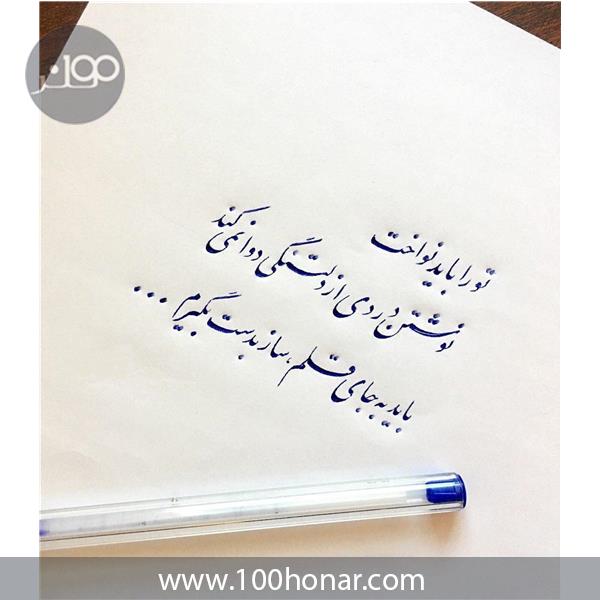 تو را باید نواخت
نوشتن دردی از دلتنگی دوا نمی کند
باید به جای قلم، ساز بدست بگیرم ...
www.100honar.com